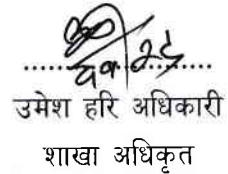 उमेश हरि अधिकारी
शाखा अधिकृत